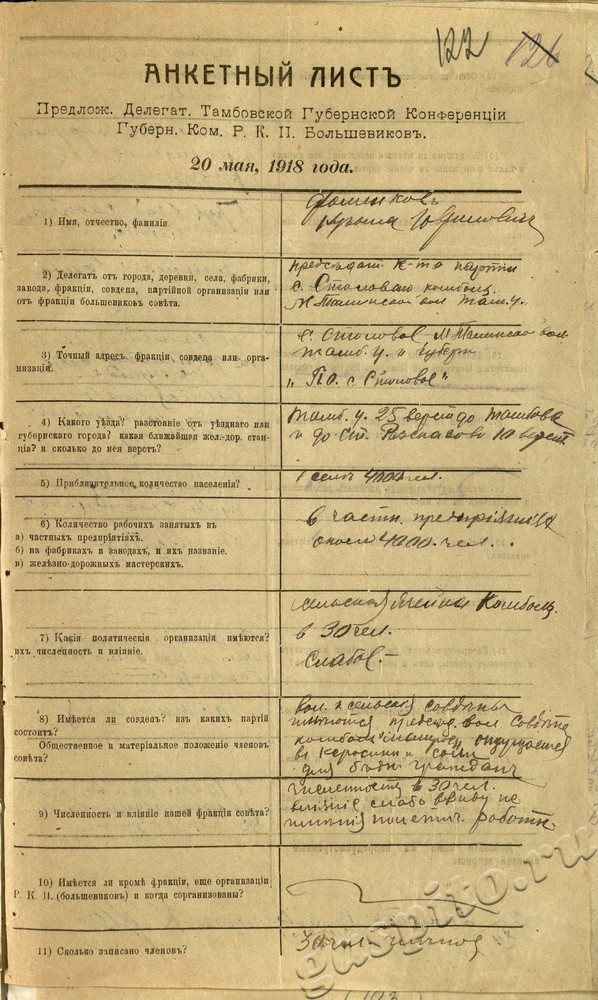 122 126
АНКЕТНЫЙ ЛИСТЪ
Предлож. Делегат. Тамбовской Губернской Конференціи
Губерн. Ком. Р. К. П. Большевиковъ.
20 мая, 1918 года.
1) Имя, отчество, фамилія.
Фоменковъ
2) Делегатъ отъ города, деревни, села, фабрики,
завода, фракціи, совдепа, партійной организаціи или
отъ фракціи большевиковъ совѣта.
председат. К-та партіи
с. Столоваго
3) Точный адресъ фракціи совдепа или орга-
низаціи.
с. Столовое
Тамб. у. и губерн
"П.о. с Столовое"
4) Какого уѣзда? разстояніе отъ уѣзднаго или
губернскаго города? какая ближайшая жел.-дор. стан-
ція? и сколько до нея верстъ?
Тамб. у. 25 верст до Тамбова
и до ст. Разсказово 10 верст.
5) Приблизительное количество населенія?
4000 чел.
6) Количество рабочихъ занятыхъ въ
а) частныхъ предпріятіяхъ.
б) на фабрикахъ и заводахъ, и ихъ названіе.
в) желѣзно-дорожныхъ мастерскихъ.
в частн. предпріятіях
около 4000 чел.
7) Какія политическія организаціи имѣются?
ихъ численность и вліяніе.
сельская ячейка
в 30 чел.
слабое.-
8) Имѣется ли совдепъ? изъ какихъ партій
состоитъ?
Общественное и матеріальное положеніе членовъ
совѣта?
вол. и сельскія совдепы
имѣются председ. вол совдепа
ощущается
въ керосинѣ и соли
для бѣдн. граждан
9) Численность и вліяніе нашей фракціи совѣта?
численность в 30 чел.
вліяніе слабо ввиду не
имѣнія политич. работн.
10) Имѣется ли кромѣ фракціи, еще организаціи
Р. К. П. (большевиковъ) и когда сорганизованы?
11) Сколько записано членовъ?
30 чел.
gaspito.ru